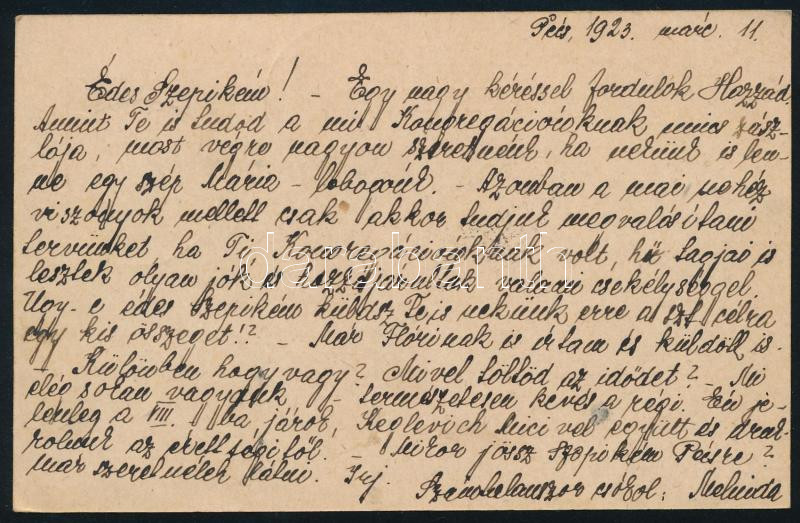 Pécs, 1923. márc. 11.
Édes Szepikém! – Egy nagy kéréssel fordulok Hozzád,
Amint Te is tudod a mi Kongregációnknak nincs zász-
lója, most végre nagyon szeretnénk, ha nekünk is len-
ne egy szép Mária-lobogónk. – Azonban a mai nehéz
viszonyok mellett csak akkor tudjuk megvalósítani
tervünket ha Ti Kongregációnknak volt, hű tagjai is
lesztek olyan jók és hozzájárultok valami csekélységgel
Ugy-e édes Szepikém küldsz Te is nekünk erre a szt. célra
egy kis összeget!? – Már Flórinak is írtam és küldött is.
– Különben hogy vagy? Mivel töltöd az idődet? – Mi
elég sokan vagyunk – természetesen kevés a régi. Én je-
lenleg a VIII. ba járok, Keglevich Micivel együtt és druk-
kolunk az érettségitől. – Mikor jössz Szepikém Pécsre?
már szeretnélek látni. Irj.
csókol: Melinda
darabanth